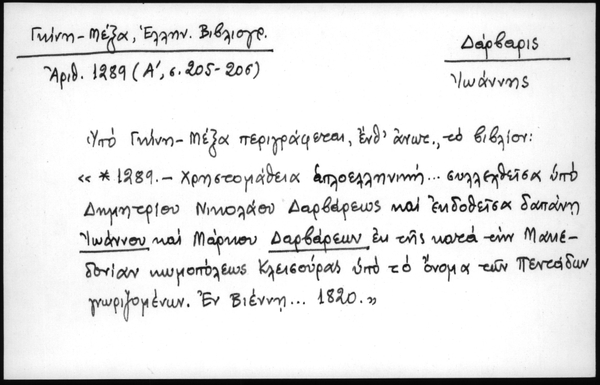 Γκίνη-Μέξα, Ἑλλην. Βιβλιογρ.
Ἀριθ. 1289 (Α΄, σ. 205-206)
Δάρβαρις
Ἰωάννης
Ὑπό Γκίνη-Μέξα περιγράφεται, ἔνθ' ἀνωτ., τό βιβλίον:
«*1289.- Χρηστομάθεια ἁπλοελληνική... συλλεχθεῖσα ὑπό
Δημητρίου Νικολάου Δαρβάρεως καί ἐκδοθεῖσα δαπάνῃ
Ἰωάννου καί Μάρκου Δαρβάρεων ἐκ τῆς κατά τήν Μακε-
δονίαν κωμοπόλεως Κλεισούρας ὑπό τό ὄνομα τῶν Πεντάδων
γνωριζομένων. Ἐν Βιέννῃ... 1820.»